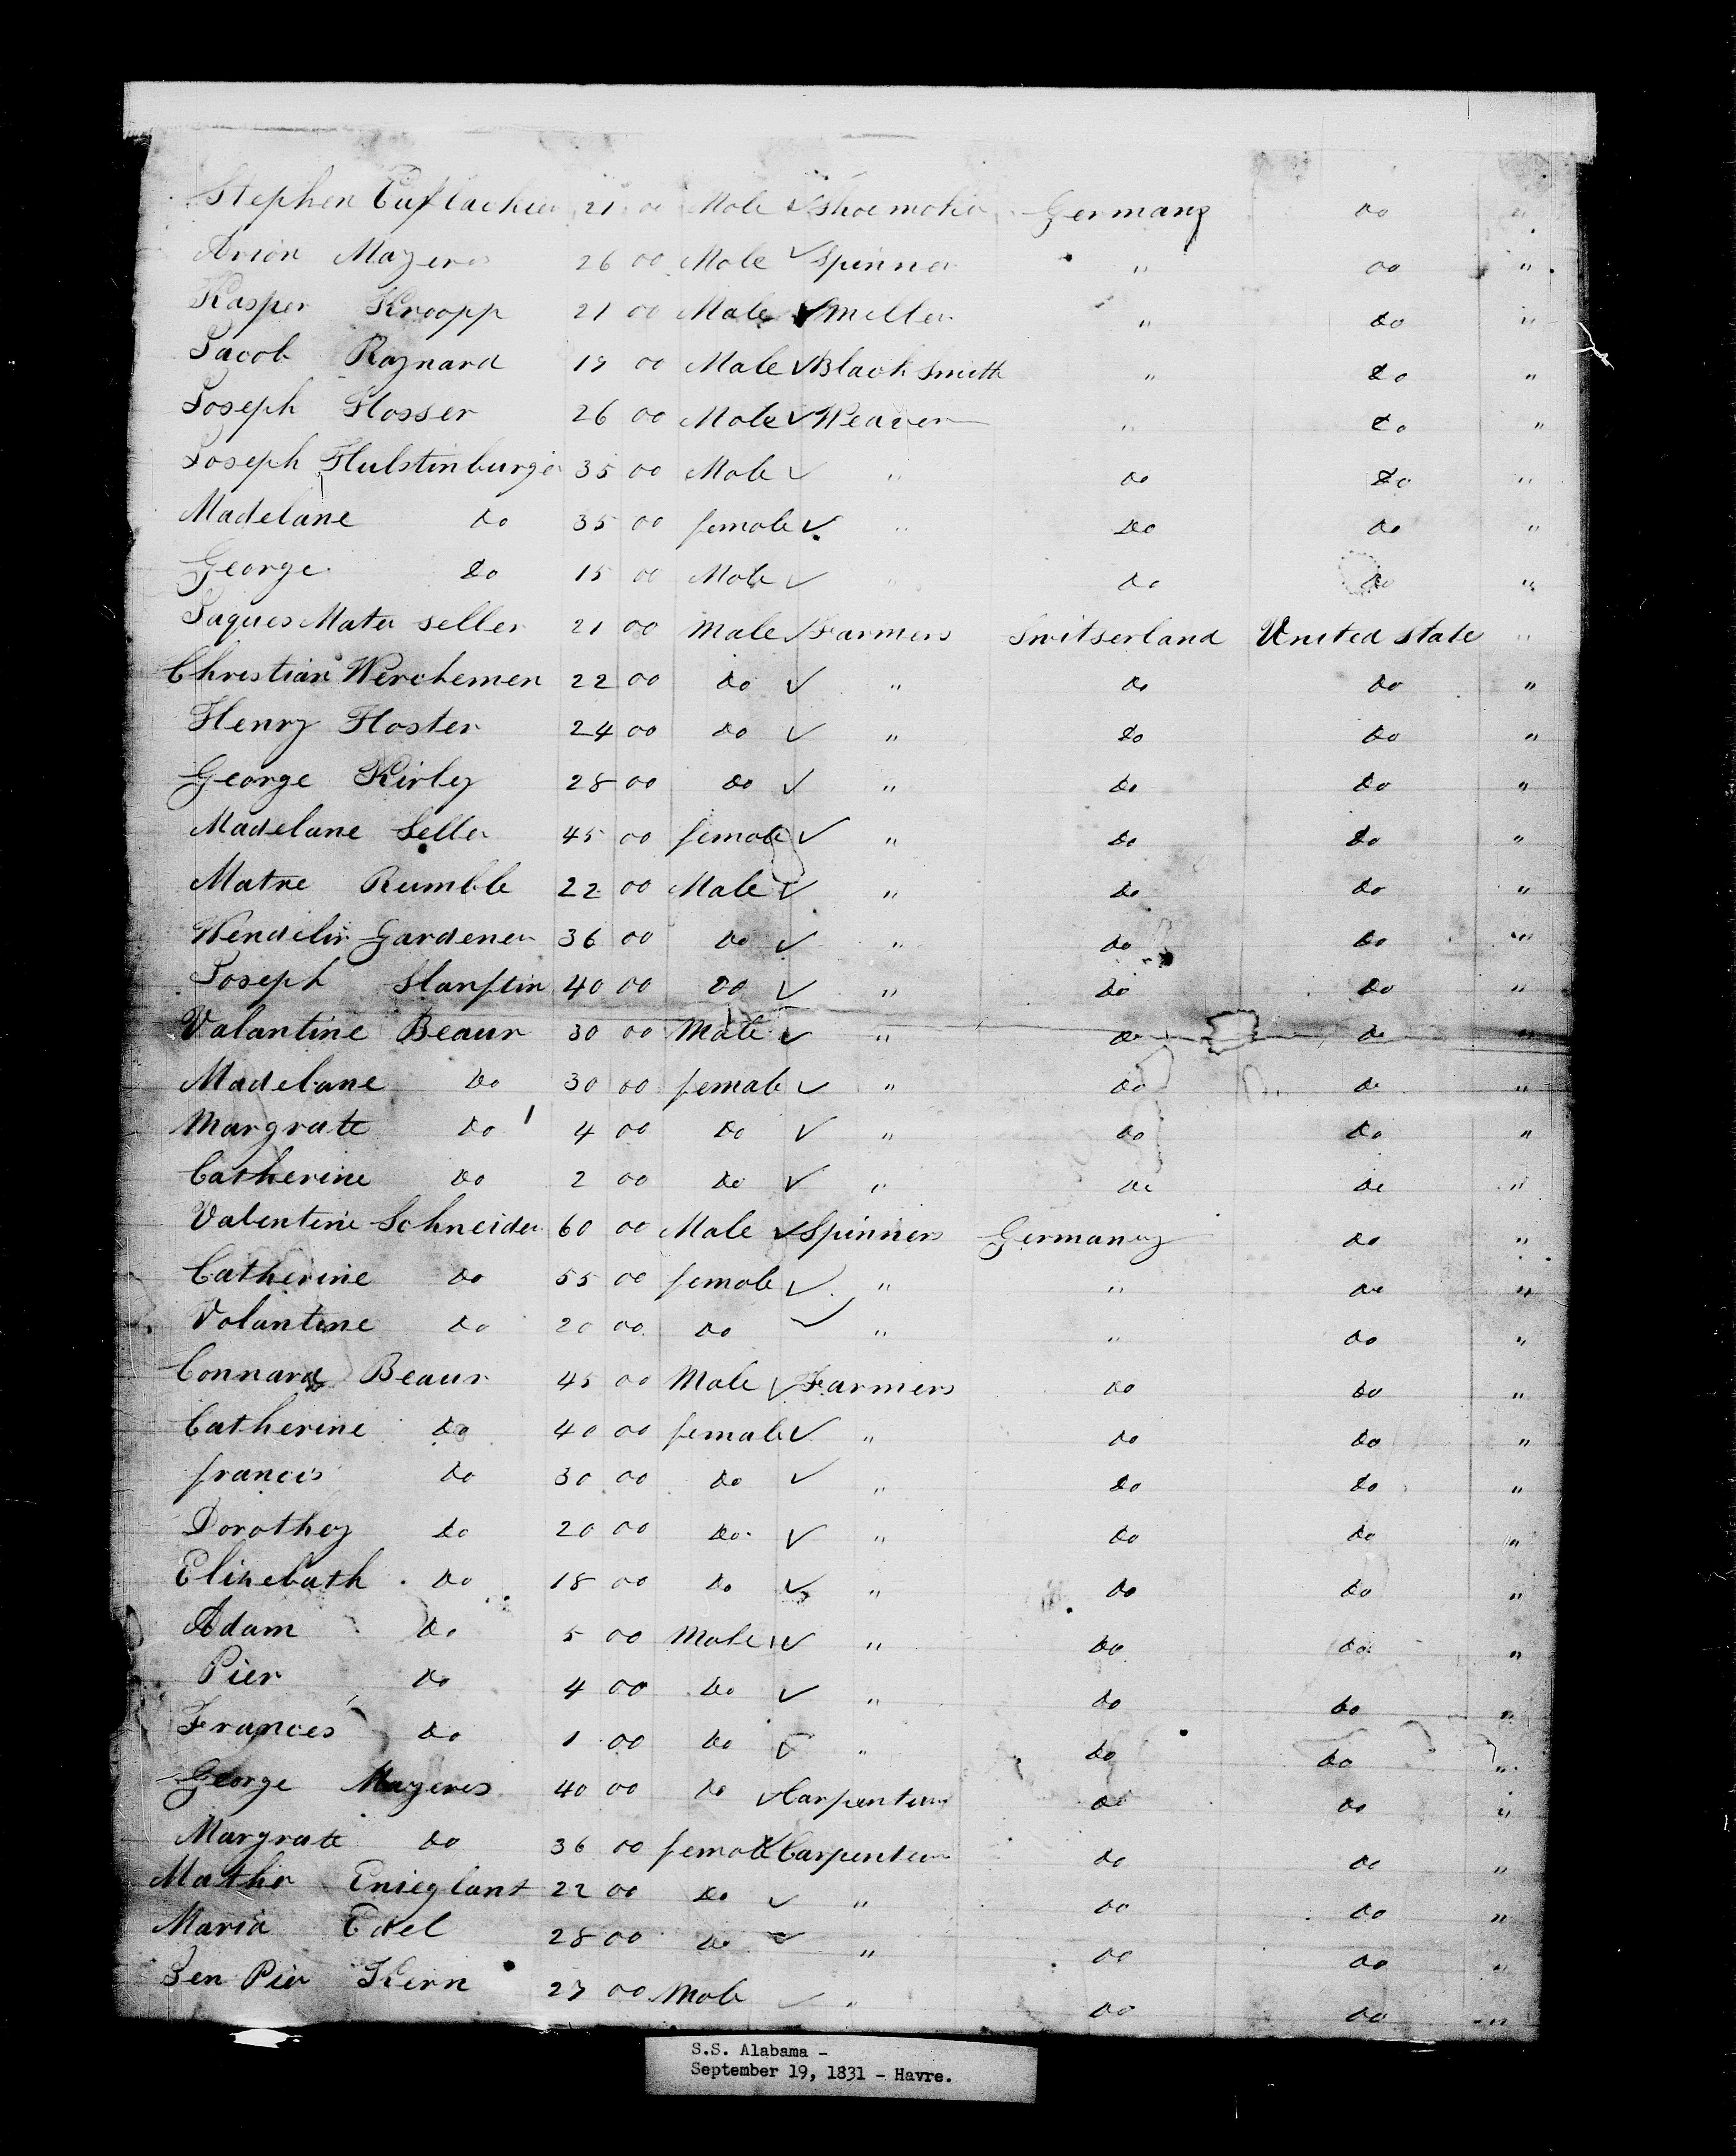 Stephen 21 00 Male ✓ Shoemaker Germany do "
Mayers 26 00 Male ✓ Spinner " do "
Kasper Knoopp 21 00 Male ✓ Miller " do "
Jacob Raynard 19 00 Male ✓ Black Smith " do "
Joseph Hosser 26 00 Male ✓ Weaver " do "
Joseph Hulstinburger 35 00 Male ✓ " do do "
Madelane do 35 00 female ✓ " do do "
George do 15 00 Male ✓ " do do "
Jaques Mate seller 21 00 Male ✓ Farmers Switserland United State "
Christian Werchemen 22 00 do ✓ " do do "
Henry Hoster 24 00 do ✓ " do do "
George Kirley 28 00 do ✓ " do do "
Madelane Seller 45 00 female ✓ " do do "
Matne Rumble 22 00 Male ✓ " do do "
Wendelin Gardener 36 00 do ✓ " do do "
Joseph 40 00 do ✓ " do do "
Valantine Beaur 30 00 Male ✓ " do do "
Madelane do 30 00 female ✓ " do do "
Margrate do 4 00 do ✓ " do do "
Catherine do 2 00 do ✓ " do do "
Valentine Schneider 60 00 Male ✓ Spinners Germany do "
Catherine do 55 00 female ✓ " " do "
Valantine do 20 00 do ✓ " " do "
Connard Beaur 45 00 Male ✓ Farmers do do "
Catherine do 40 00 female ✓ " do do "
francis do 30 00 do ✓ " do do "
Dorothey do 20 00 do ✓ " do do "
Elizebath do 18 00 do ✓ " do do "
Adam do 5 00 Male ✓ " do do "
Pier do 4 00 do ✓ " do do "
Frances do 1 00 do ✓ " do do "
George Mayeres 40 00 do ✓ Carpenters do do "
Margrate do 36 00 female ✓ Carpenters do do "
Mathe Enieglant 22 00 do ✓ " do do "
Maria Edel 28 00 do ✓ " do do "
Jen Pier Kern 27 00 Male ✓ " do do "
S.S. Alabama -
September 19, 1831 - Havre.